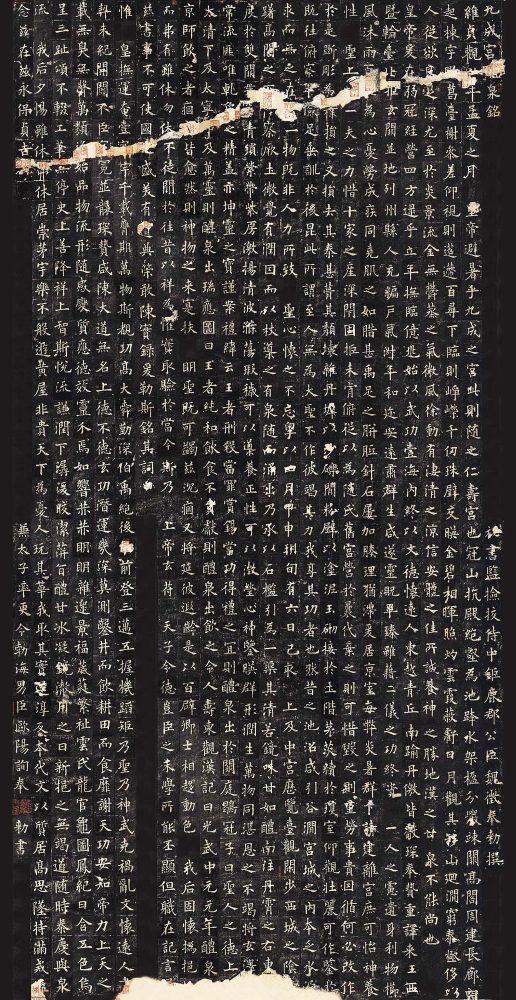 九成宮醴泉銘 祕書監檢校侍中鉅鹿郡公臣魏徵奉勑撰
維貞觀六年孟夏之月 皇帝避暑乎九成之宮此則隨之仁壽宮也冠山抗殿絕壑為池跨水架楹分巖竦闕高閣周建長廊四
起棟宇膠葛臺榭參差仰視則迢遰百尋下臨則崢嶸千仞珠璧交暎金碧相暉照灼雲霞蔽虧日月觀其移山迴澗窮泰極侈以
人從欲良足深尤至於炎景流金無鬱蒸之氣微風徐動有淒清之涼信安體之佳所誠養神之勝地漢之甘泉不能尚也
皇帝爰在弱冠經營四方逮乎立年撫臨億兆始以武功壹海內終以文德懷遠人東越青丘南踰丹徼皆獻琛奉贄重譯來王西
暨輪臺北拒玄闕並地列州縣人充編戶氣淑年和邇安遠肅群生咸遂靈貺畢臻雖藉二儀之功終資 一人之慮遺身利物櫛
風沐雨百姓為心憂勞成疾同堯肌之如腊甚禹足之胼胝針石屢加腠理猶滯爰居京室每弊炎暑群下請建離宮庶可怡神養
性 聖上愛一夫之力惜十家之產深閉固拒未肯俯從以為隨氏舊宮營於曩代棄之則可惜毀之則重勞事貴因循何必改作
於是斲彫為樸損之又損去其泰甚葺其頹壞雜丹墀以沙礫間粉壁以塗泥玉砌接於土階茅茨續於瓊室仰觀壯麗可作鑒於
既往俯察卑儉足垂訓於後昆此所謂至人無為大聖不作彼竭其力我享其功者也然昔之池沼咸引谷澗宮城之內本乏水源
求而無之在乎一物既非人力所致 聖心懷之不忘粵以四月甲申朔旬有六日己亥 上及中宮歷覽臺觀閑步西城之陰
躊躇高閣之下俯察厥土微覺有潤因而以杖導之有泉隨而涌出乃承以石檻引為一渠其清若鏡味甘如醴南注丹霄之右東流
度於雙闕貫穿青瑣縈帶紫房激揚清波滌蕩瑕穢可以導養正性可以澂瑩心神鑒映群形潤生萬物同湛恩之不竭將玄澤之
常流匪唯乾象之精蓋亦坤靈之寶謹案禮緯云王者刑殺當罪賞錫當功得禮之宜則醴泉出於闕庭鶡冠子曰聖人之德上及
太清下及太寧中及萬靈則醴泉出瑞應圖曰王者純和飲食不貢獻則醴泉出飲之令人壽東觀漢記曰光武中元元年醴泉出
京師飲之者痼疾皆愈然則神物之來寔扶 明聖既可蠲茲沉痼又將延彼遐齡是以百辟卿士相趨動色 我后固懷撝挹推
而弗有雖休勿休不徒聞於往昔以祥為懼實取驗於當今斯乃 上帝玄符 天子令德豈臣之末學所能丕顯但職在記言屬
茲書事不可使國之盛美有遺典策敢陳實錄爰勒斯銘其詞曰
惟 皇撫運奄壹寰宇千載膺期萬物斯覩功高大舜勤深伯禹絕後光前登三邁五握機蹈矩乃聖乃神武克禍亂文懷遠人書
契未紀開闢不臣冠冕並襲琛贄咸陳大道無名上德不德玄功潛運幾深莫測鑿井而飲耕田而食靡謝天功安知帝力上天之
載無臭無聲萬類資始品物流形隨感變質應德效靈介焉如響赫赫明明雜遝景福葳蕤繁祉雲氏龍官龜圖鳳紀日含五色烏
呈三趾頌不輟工筆無停史上善降祥上智斯悅流謙潤下潺湲皎潔蓱旨醴甘冰凝鏡澈用之日新挹之無竭道隨時泰慶與泉
流 我后夕惕雖休弗休居崇茅宇樂不般遊黃屋非貴天下為憂人玩其華我取其實還淳反本代文以質居高思墜持滿戒溢
念茲在茲永保貞吉 兼太子率更令勃海男臣歐陽詢奉 勑書